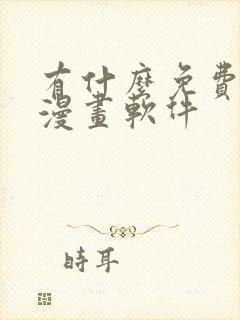 有什麼免費
漫畫軟件
時耳